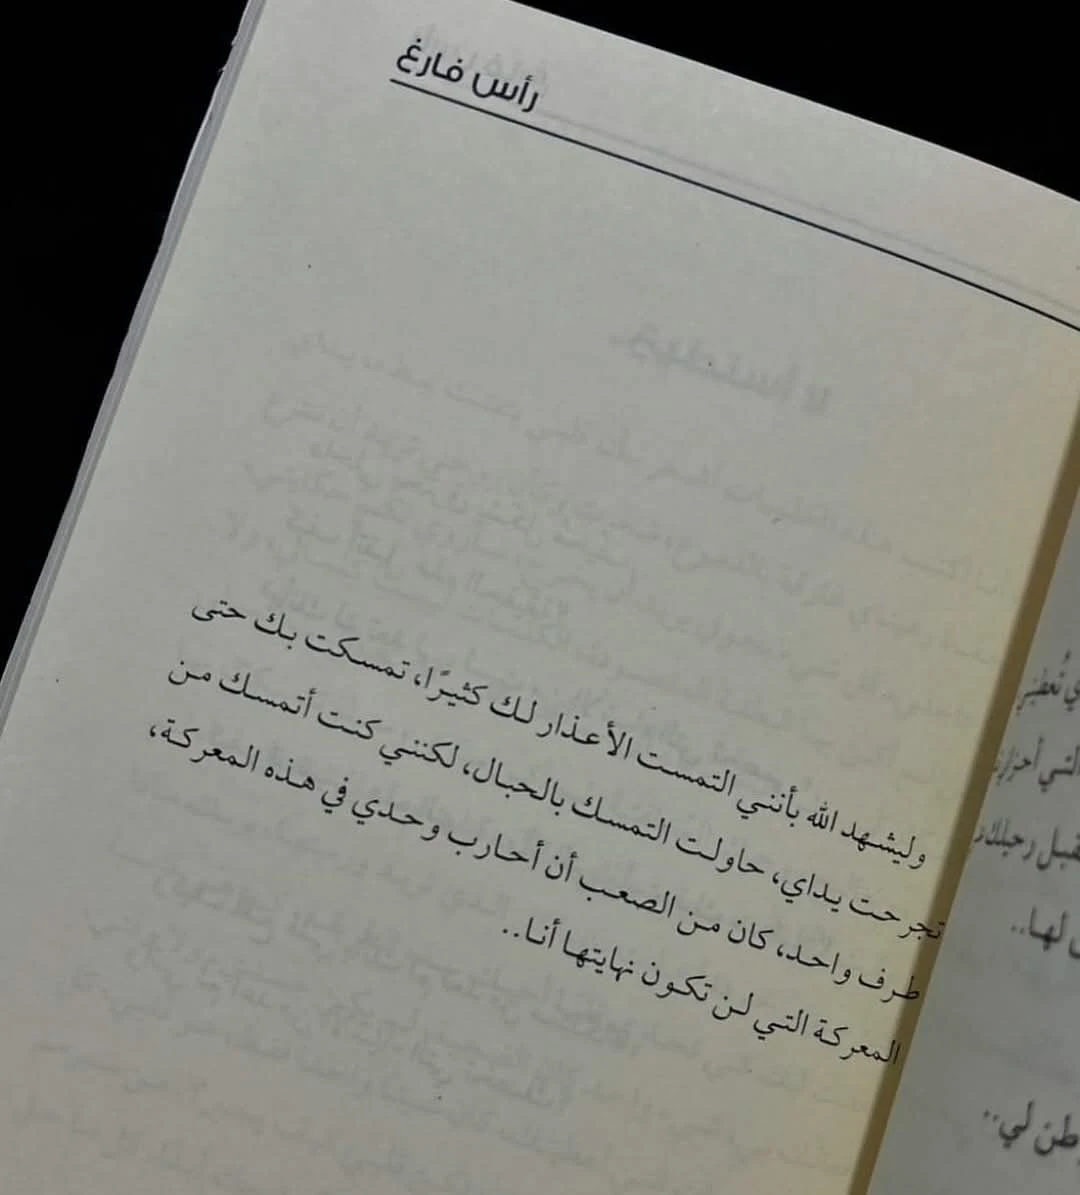 رأس فارغ
وليشهد الله بأنني التمست الأعذار لك كثيرًا، تمسكت بك حتى
تجرحت يداي، حاولت التمسك بالحبال، لكنني كنت أتمسك من
طرف واحد، كان من الصعب أن أحارب وحدي في هذه المعركة،
المعركة التي لن تكون نهايتها أنا..
التي
رحيلك
لها..
لي..